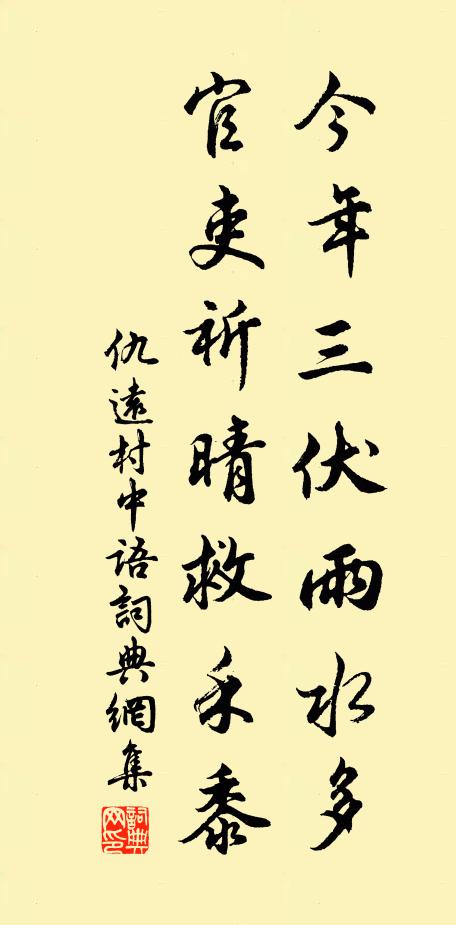 今年三伏雨水多
官吏祈晴救禾黍
仇遠村中語詞典網集
詞典网印